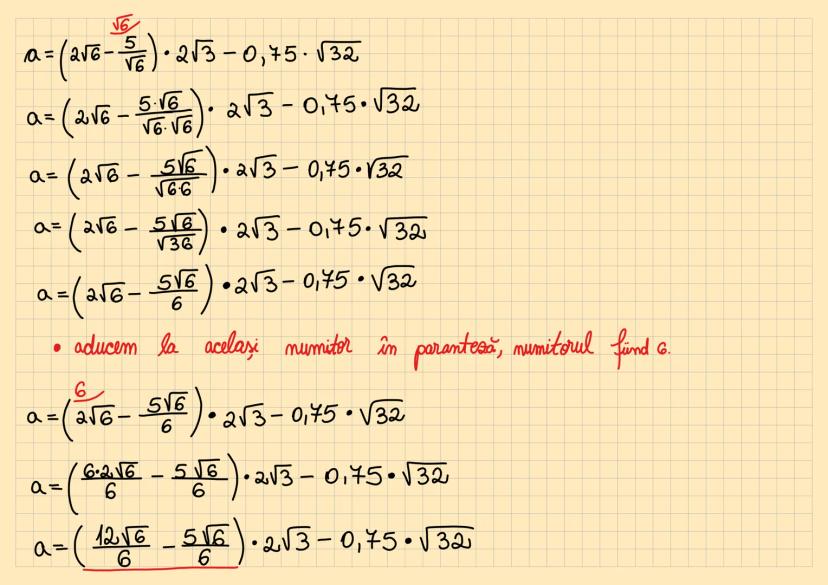 a = (2√6 - 5/√6) √6⁠) · 2√3 - 0,75 · √32
a = (2√6 - 5·√6/√6·√6) · 2√3 - 0,75 · √32
a = (2√6 - 5√6/√6·6) · 2√3 - 0,75 · √32
a = (2√6 - 5√6/√36) · 2√3 - 0,75 · √32
a = (2√6 - 5√6/6) · 2√3 - 0,75 · √32
• aducem la același numitor în paranteză, numitorul fiind 6.
6)
a = (2√6 - 5√6/6) · 2√3 - 0,75 · √32
a = (6·2√6/6 - 5√6/6) · 2√3 - 0,75 · √32
a = (12√6/6 - 5√6/6) · 2√3 - 0,75 · √32